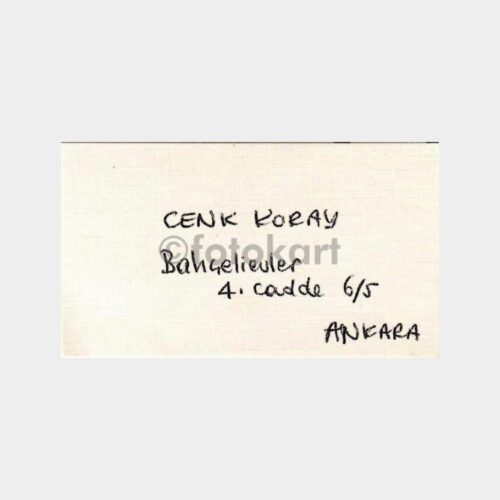 CENK KORAY
©fotokart
Bahçelievler
4. cadde 6/5
ANKARA